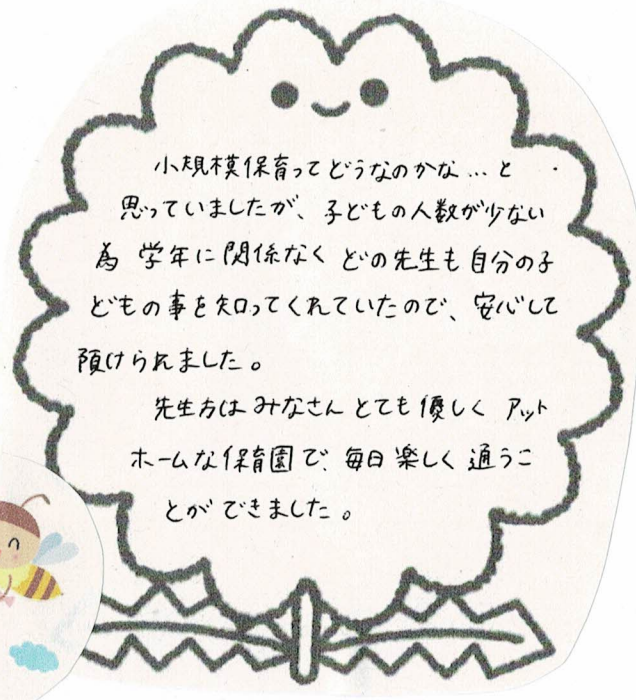 小規模保育ってどうなのかな…と
思っていましたが、子どもの人数が少ない
為 学年に関係なく どの先生も自分の子
どもの事を知ってくれていたので、安心して
預けられました。
先生方はみなさんとても優しく アット
ホームな保育園で、毎日楽しく通うこ
とができました。